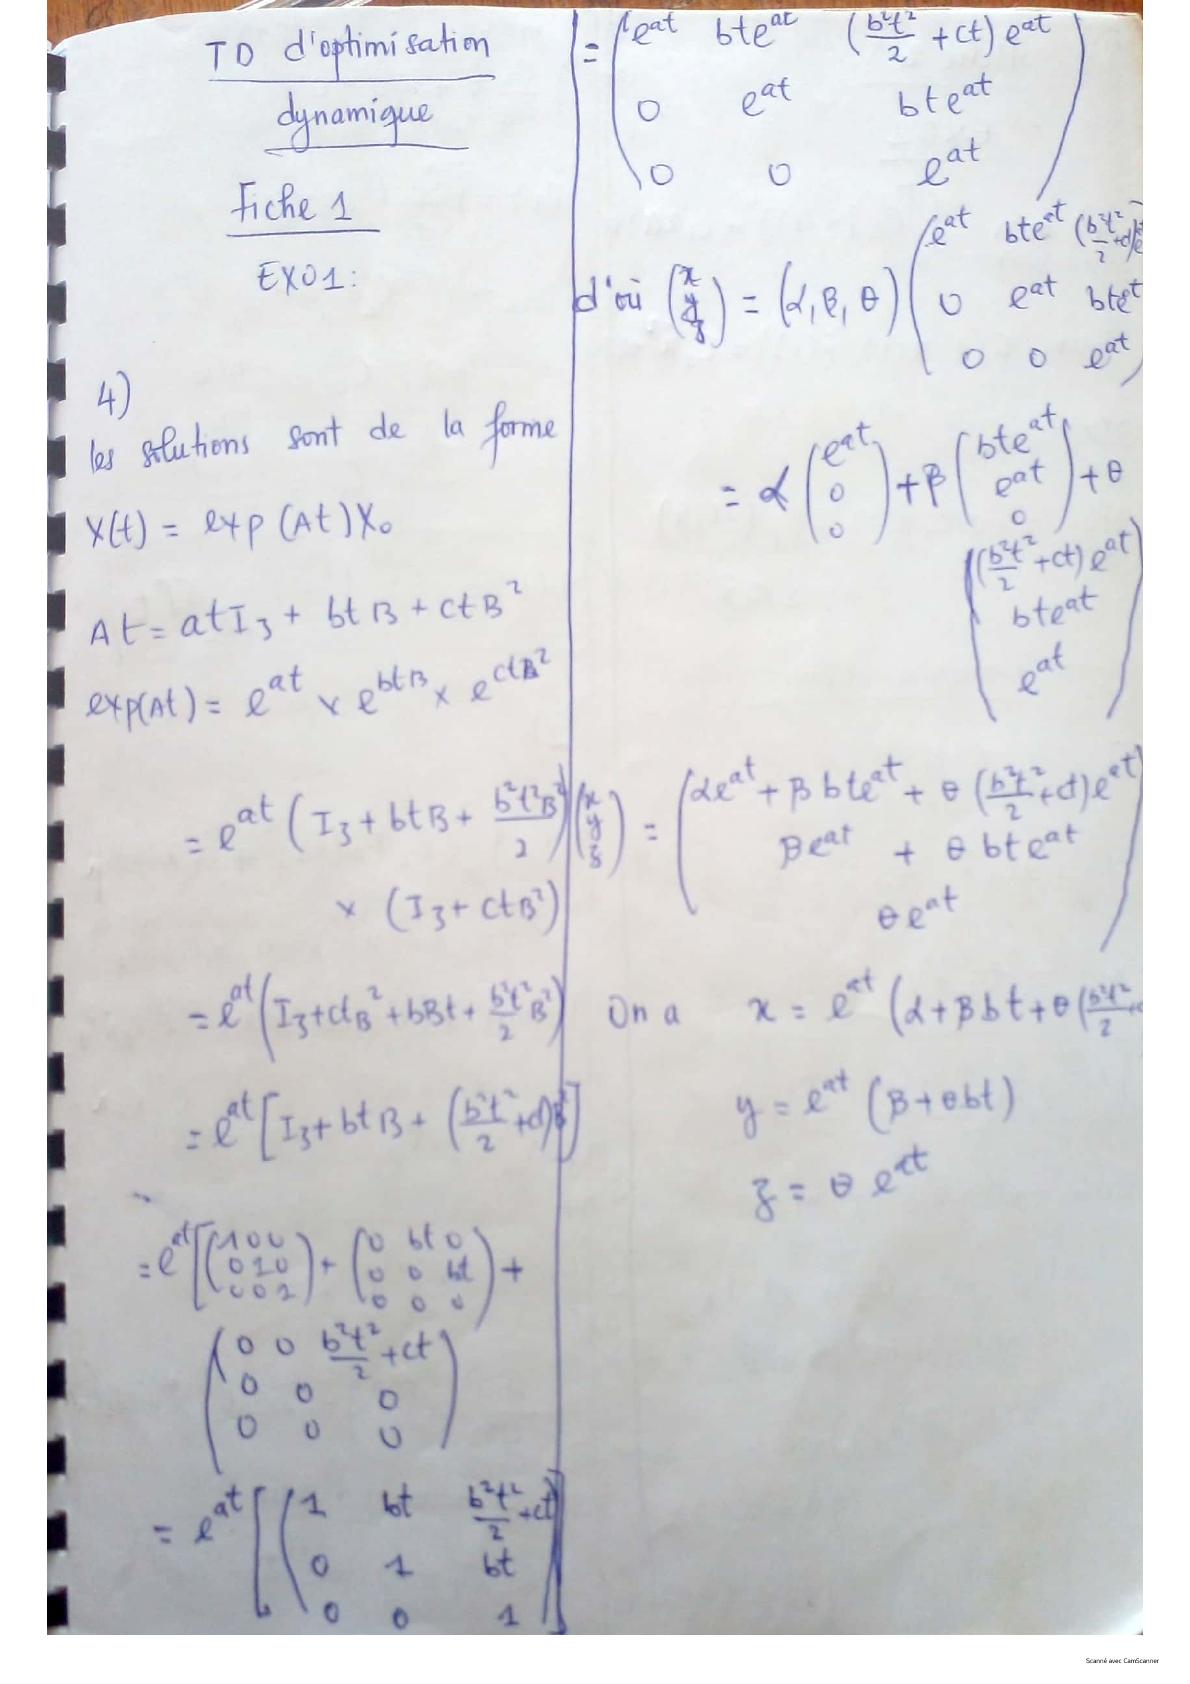 TD d'optimisation
dynamique
Fiche 1
EXO1:
4)
les solutions sont de la forme
X(t) = exp(At)X₀
At = atI₃ + btB + ctB²
exp(At) = e^{at} × e^{btB} × e^{ctB²}
= e^{at} (I₃ + btB + b²t²B²/2)
× (I₃ + ctB²)
= e^{at} (I₃ + ctB² + bBt + b²t²/2 B²)
= e^{at} [I₃ + btB + (b²t²/2 + ct)B²]
= e^{at} [(1 0 0
0 1 0
0 0 1) + (0 bt 0
0 0 bt
0 0 0) +
(0 0 b²t²/2 + ct
0 0 0
0 0 0)
= e^{at} [(1 bt b²t²/2 + ct
0 1 bt
0 0 1)]
= (e^{at} bte^{at} (b²t²/2 + ct) e^{at}
0 e^{at} bte^{at}
0 0 e^{at})
d'où (x y z) = (α, β, θ) (e^{at} bte^{at} (b²t²/2 + ct)e
0 e^{at} bte^{t}
0 0 e^{at})
= α (e^{at} 0 0) + β (bte^{at} e^{at} 0) + θ
((b²t²/2 + ct) e^{at}
bte^{at}
e^{at})
(x y z) = (αe^{at} + β bte^{at} + θ (b²t²/2 + ct) e^{at}
βe^{at} + θ bte^{at}
θe^{at})
On a x = e^{at} (α + βbt + θ(b²t²/2 +
y = e^{at} (β + θbt)
z = θ e^{at}
Scanné avec CamScanner